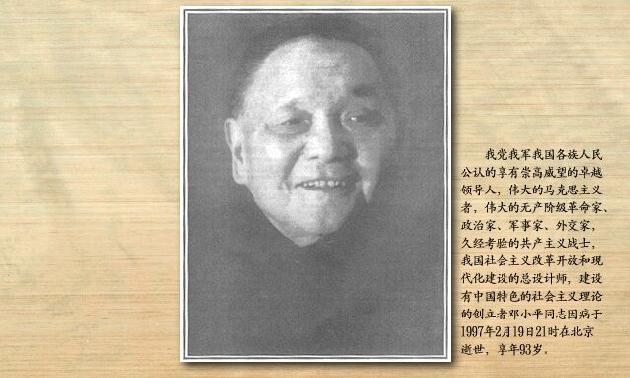 我党我军我国各族人民
公认的享有崇高威望的卓越
领导人，伟大的马克思主义
者，伟大的无产阶级革命家、
政治家、军事家、外交家，
久经考验的共产主义战士，
我国社会主义改革开放和现
代化建设的总设计师，建设
有中国特色的社会主义理论
的创立者邓小平同志因病于
1997年2月19日21时在北京
逝世，享年93岁。